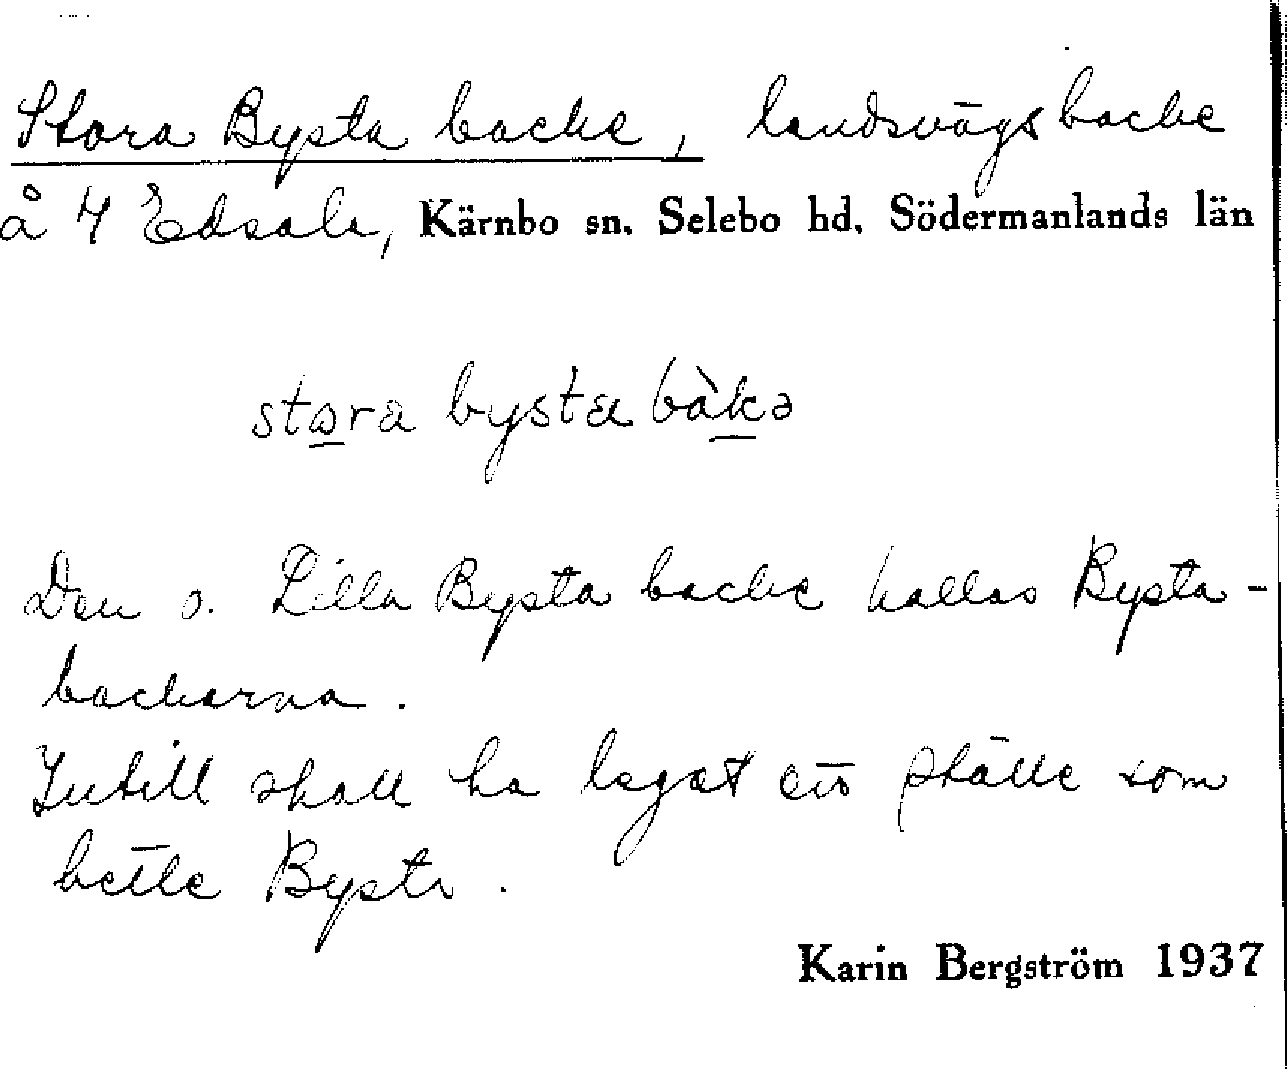 Stora Bysta backe, landsvägsbacke
å 4 Edsala, Kärnbo sn. Selebo hd. Södermanlands län
stora bysta bàkə
Den o. Lilla Bysta backe kallas Bysta-
backarna.
Intill skall ha legat ett ställe som
hette Bysta.
Karin Bergström 1937